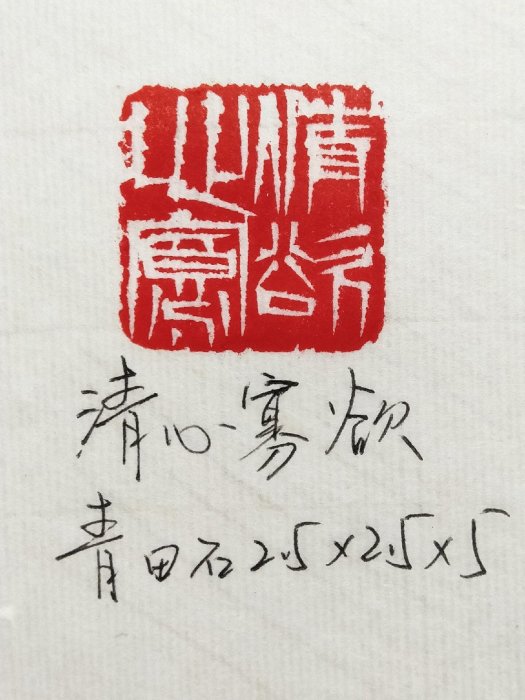 清心寡欲
清心寡欲
青田石2.5×2.5×5